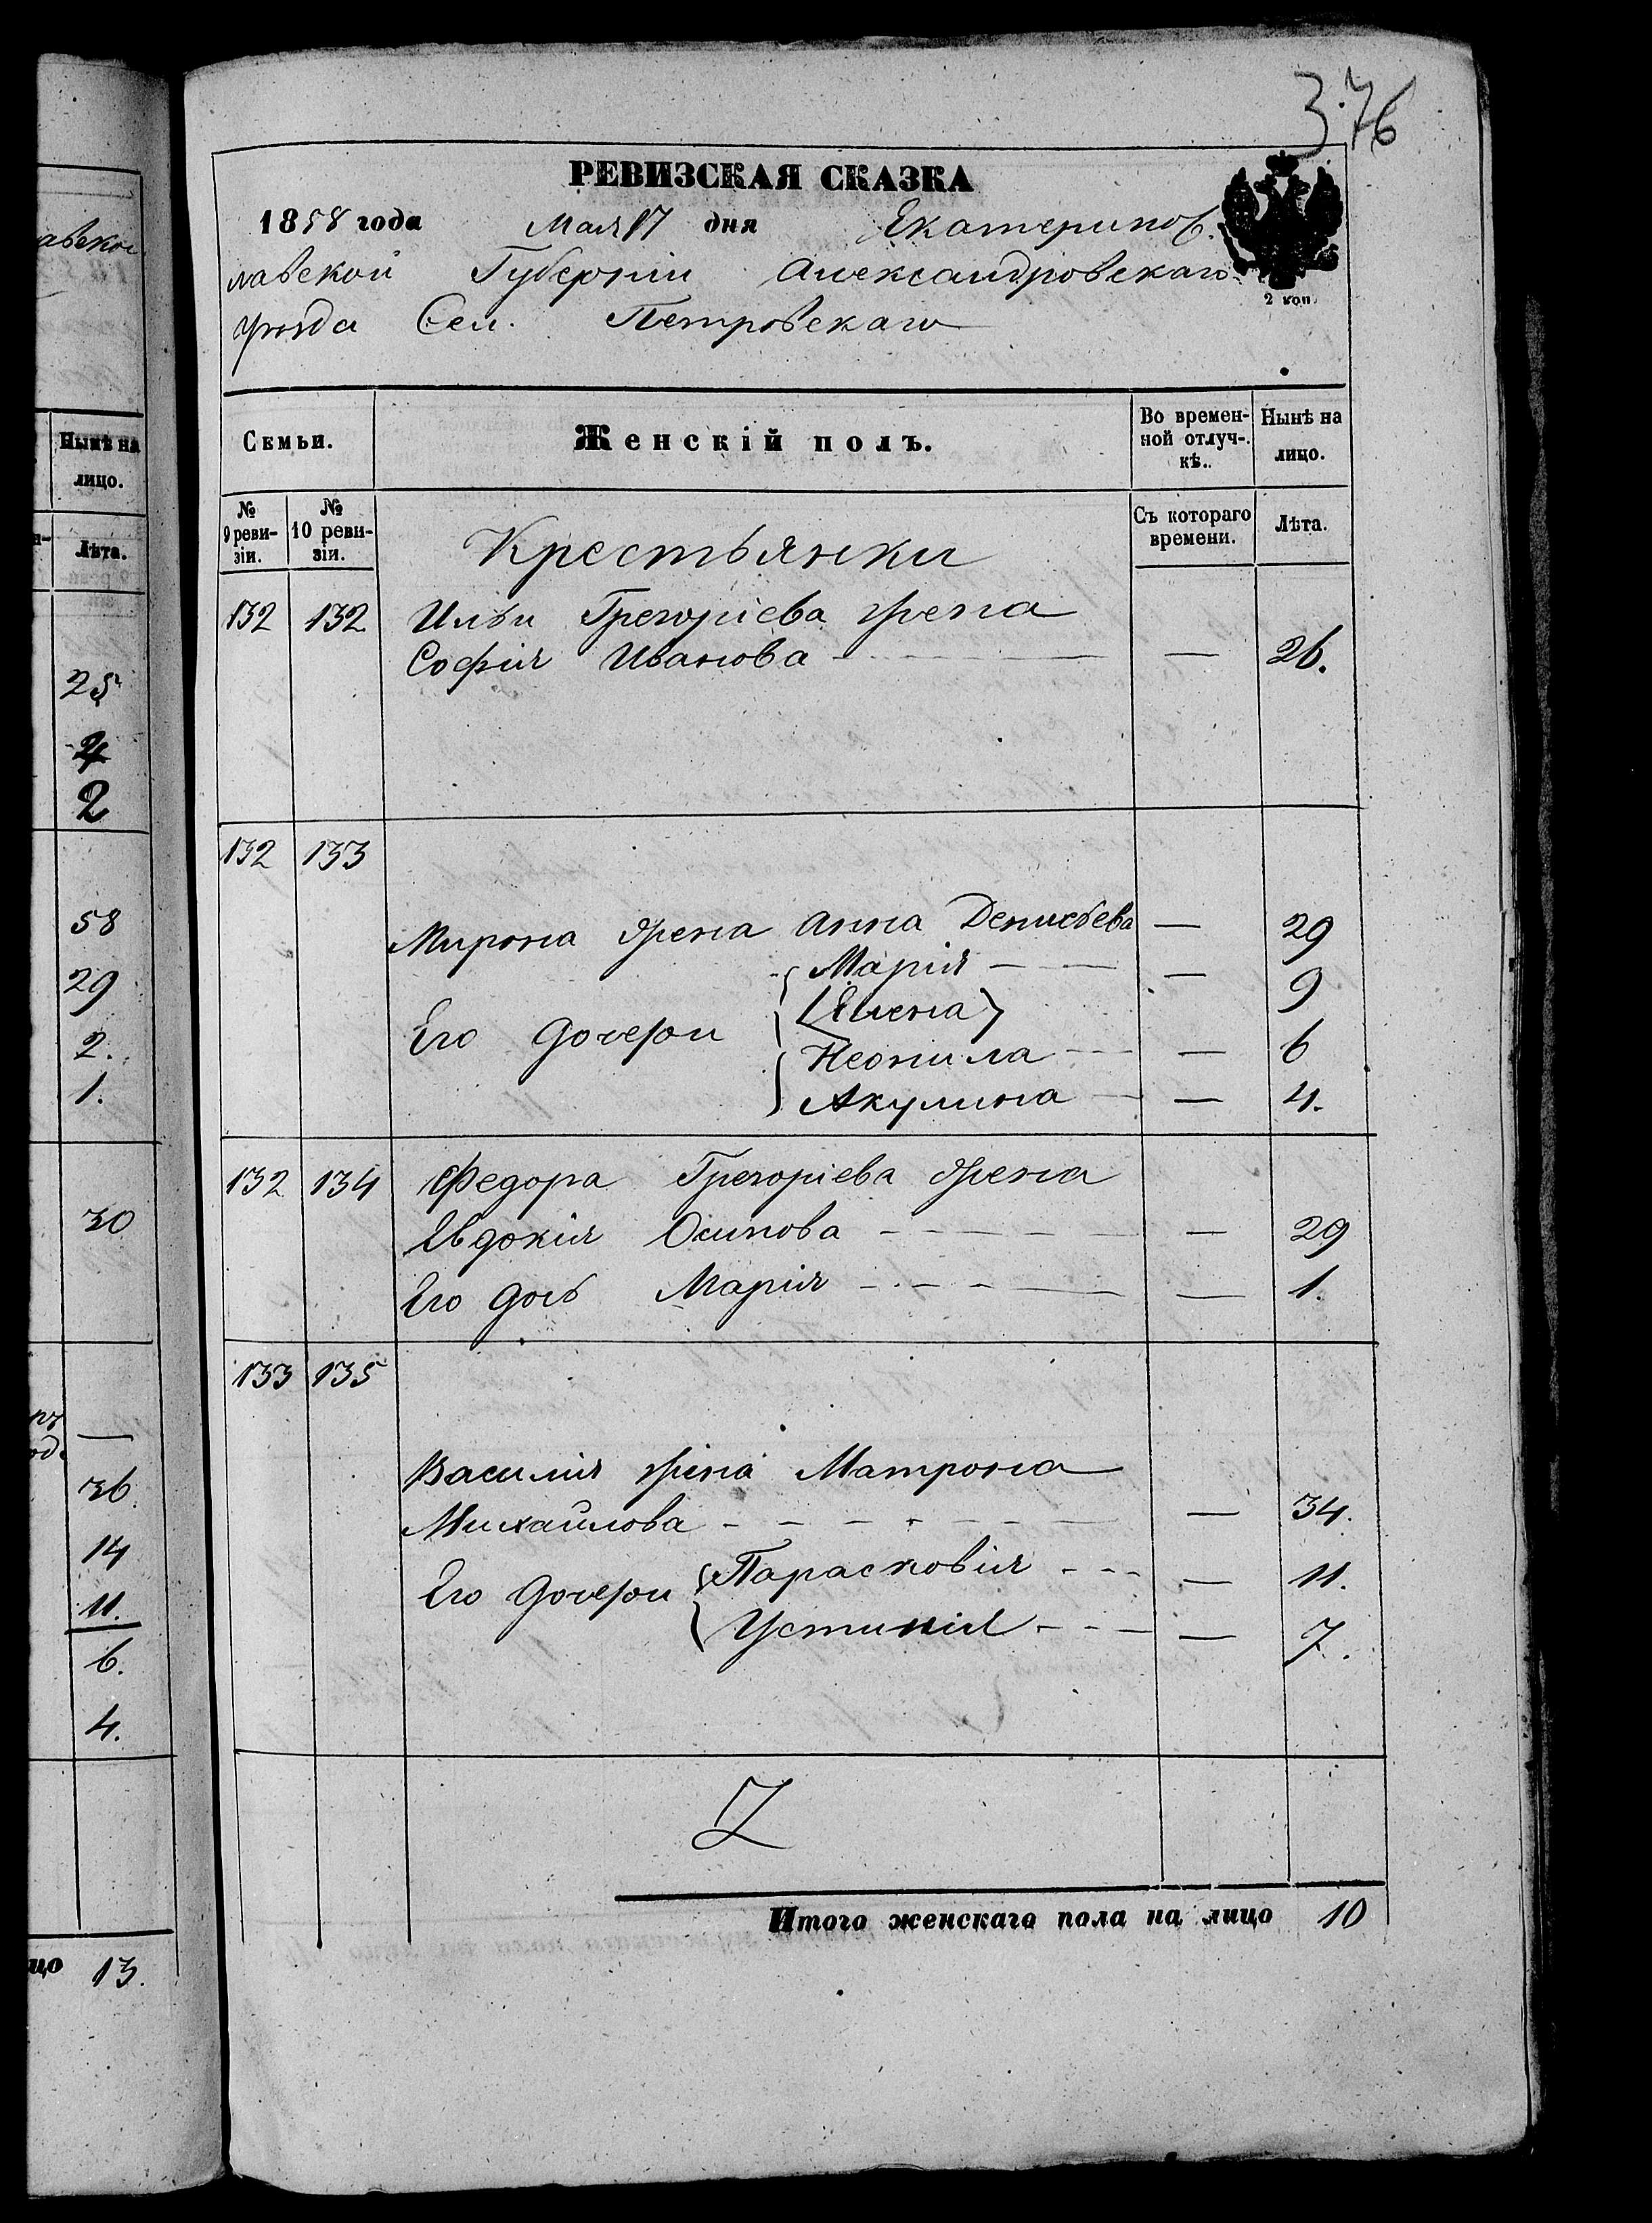 376
РЕВИЗСКАЯ СКАЗКА
1858 года Мая 17 дня Екатеринос-
лавской Губерніи Александровскаго
уѣзда Сел. Петровскаго
2 коп.
Семьи. Женскій полъ. Во времен-ной отлуч-кѣ. Нынѣ на лицо.
№ 9 реви-зіи. № 10 реви-зіи. Крестьянки Съ котораго времени. Лѣта.
132 132 Ильи Григоріева жена
Софія Иванова — 26.
132 133
Мирона жена Анна Денисьева — 29
Марія — 9
Его дочери [Елена]
Неонила — 6
Акулина — 4.
132 134 Федора Григоріева жена
Евдокія Осипова — 29
Его дочь Марія — 1.
133 135
Василия жена Матрона
Михайлова — 34.
Его дочери Парасковія — 11.
Устинія — 7.
Z
Итого женскаго пола на лицо 10
авской
Нынѣ на
лицо.
Лѣта.
25
4
2
58
29
2.
1.
30
—
36.
14
11.
6.
4.
цо 13.